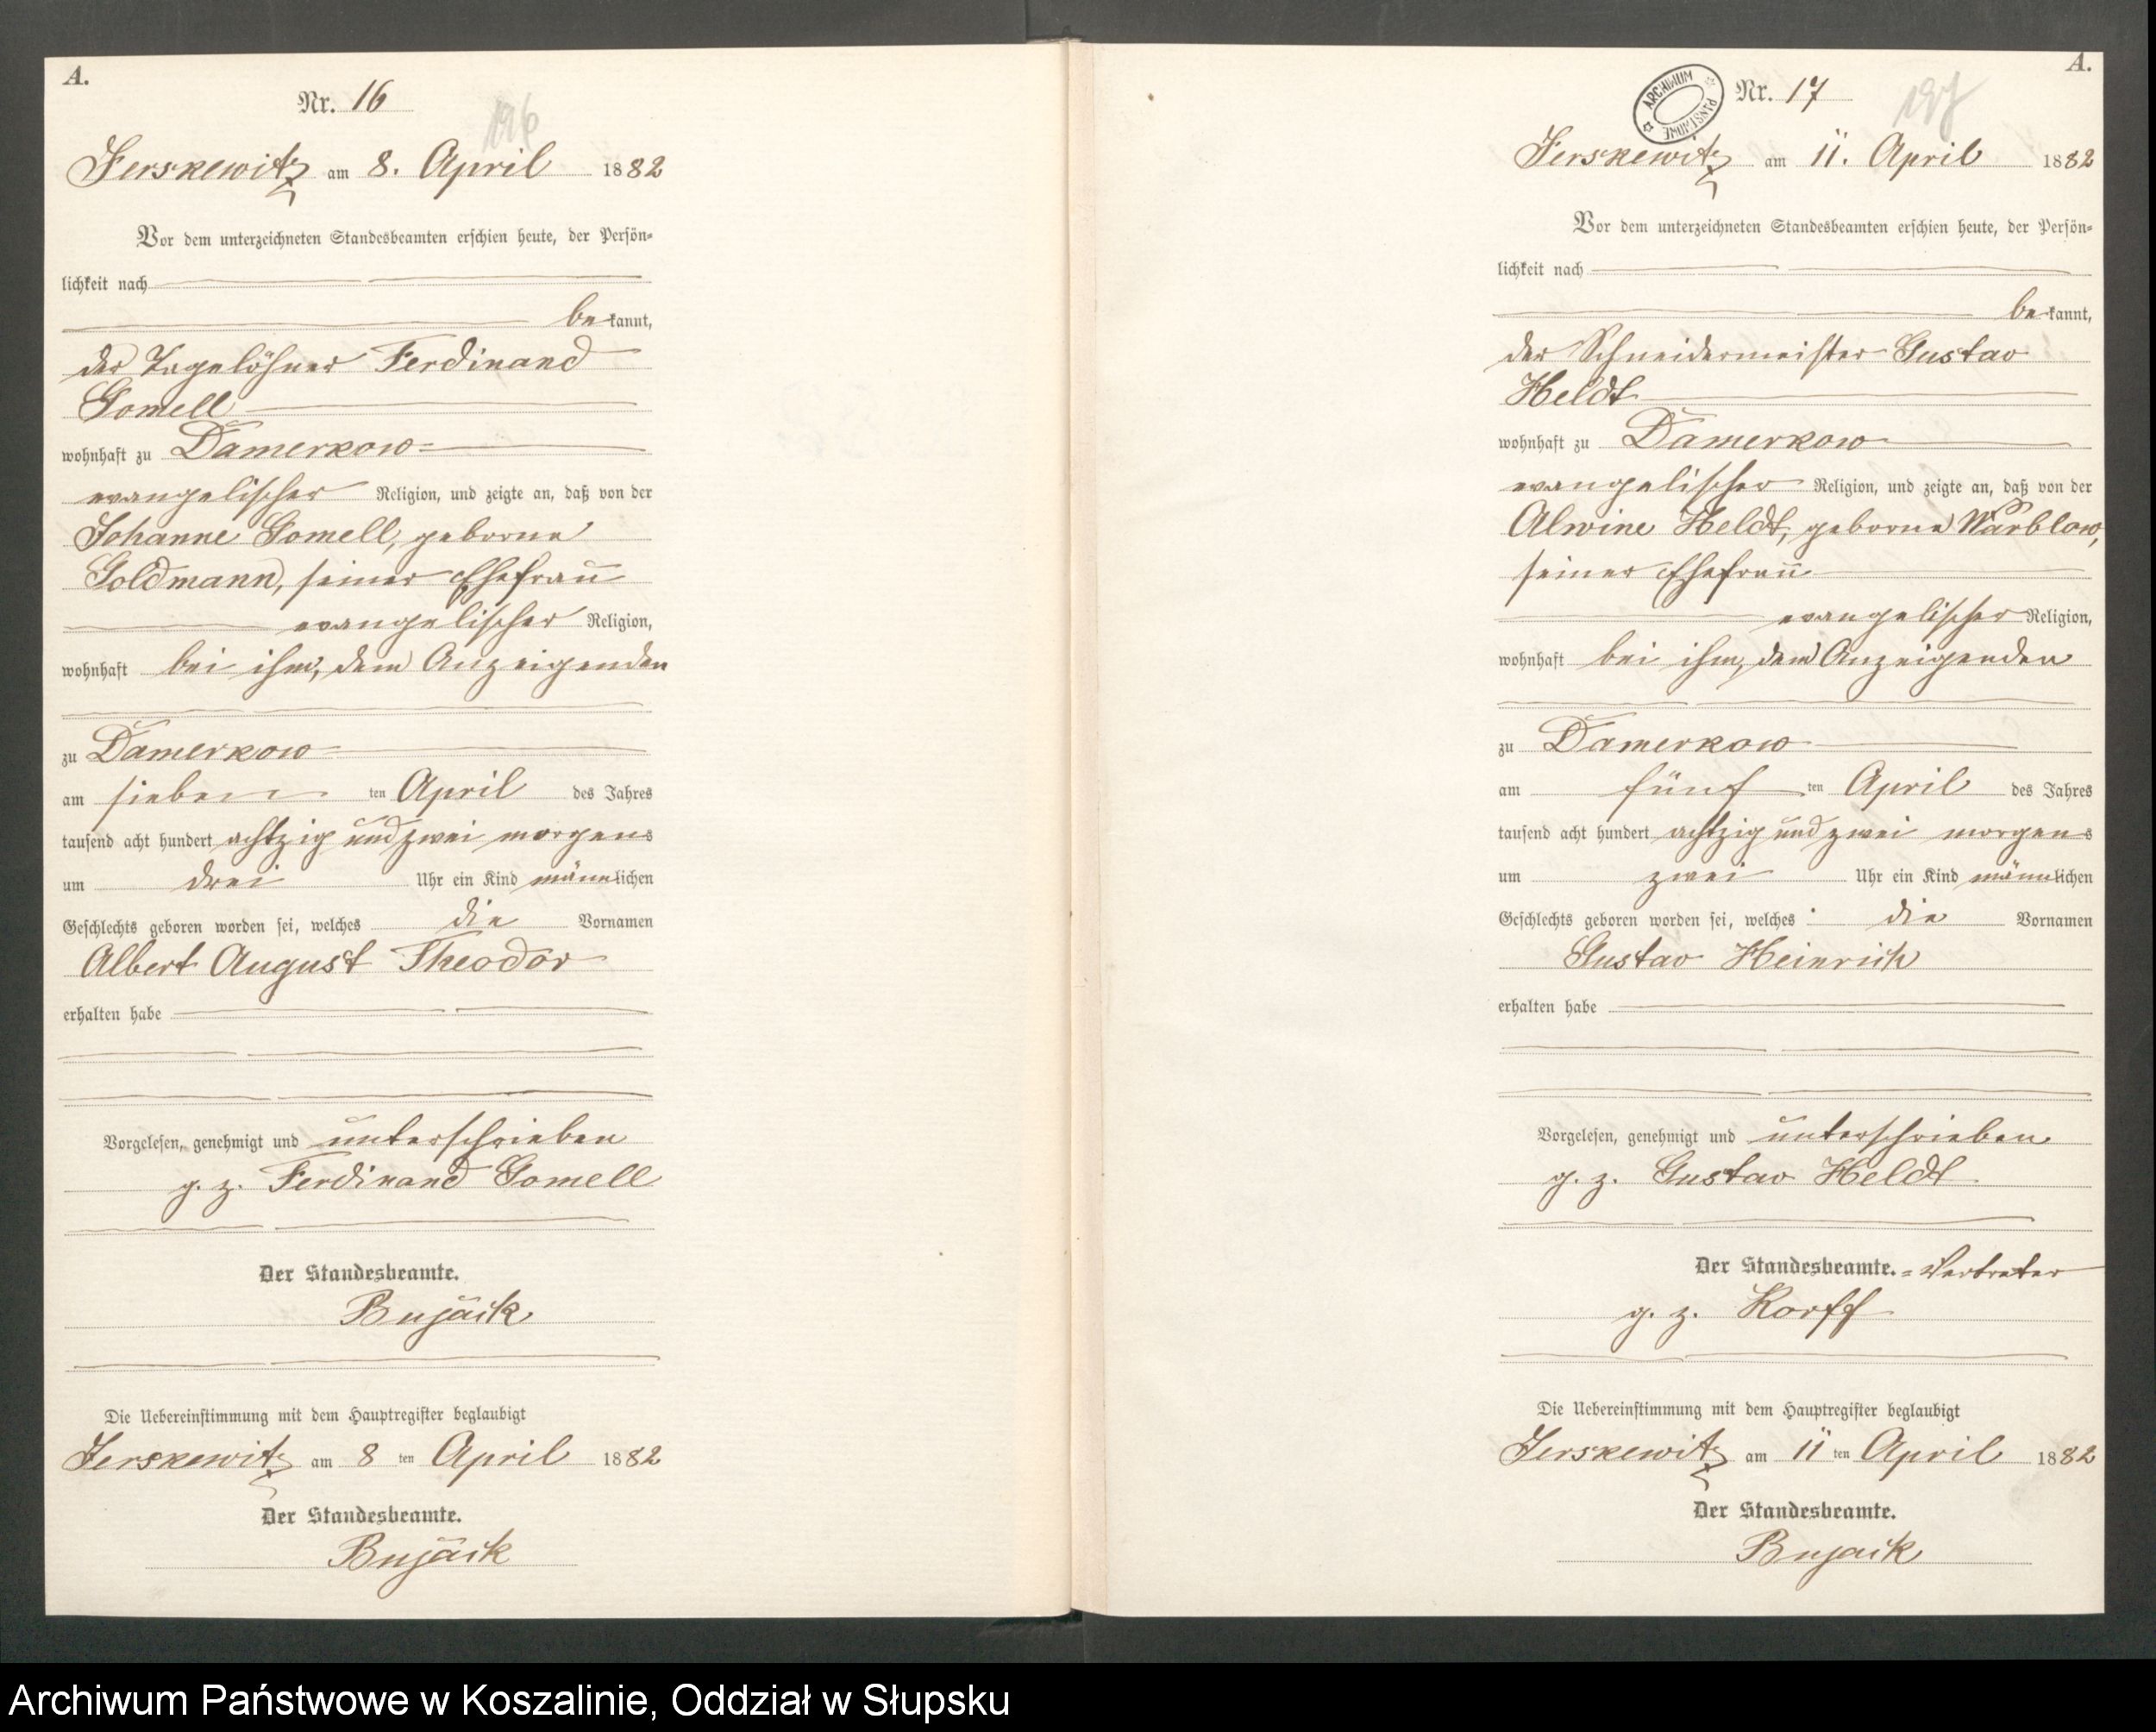 A.
Nr. 16
196
Jerskewitz am 8. April 1882
Vor dem unterzeichneten Standesbeamten erschien heute, der Persön-
lichkeit nach
bekannt,
der Tagelöhner Ferdinand
Gomell
wohnhaft zu Damerkow
evangelischer Religion, und zeigte an, daß von der
Johanne Gomell, geborne
Goldmann, seiner Ehefrau
evangelischer Religion,
wohnhaft bei ihm, dem Anzeigenden
zu Damerkow
am sieben ten April des Jahres
tausend acht hundert achtzig und zwei morgens
um drei Uhr ein Kind männlichen
Geschlechts geboren worden sei, welches die Vornamen
Albert August Theodor
erhalten habe
Vorgelesen, genehmigt und unterschrieben
g. z. Ferdinand Gomell
Der Standesbeamte.
Bujack
Die Uebereinstimmung mit dem Hauptregister beglaubigt
Jerskewitz am 8 ten April 1882
Der Standesbeamte.
Bujack
A.
ARCHIWUM PAŃSTWOWE
Nr. 17
197
Jerskewitz am 11. April 1882
Vor dem unterzeichneten Standesbeamten erschien heute, der Persön-
lichkeit nach
bekannt,
der Schneidermeister Gustav
Heldt
wohnhaft zu Damerkow
evangelischer Religion, und zeigte an, daß von der
Alwine Heldt, geborne Warblow,
seiner Ehefrau
evangelischer Religion,
wohnhaft bei ihm, dem Anzeigenden
zu Damerkow
am fünf ten April des Jahres
tausend acht hundert achtzig und zwei morgens
um zwei Uhr ein Kind männlichen
Geschlechts geboren worden sei, welches die Vornamen
Gustav Heinrich
erhalten habe
Vorgelesen, genehmigt und unterschrieben
g. z. Gustav Heldt
Der Standesbeamte. = Vertreter
g. z. Korff
Die Uebereinstimmung mit dem Hauptregister beglaubigt
Jerskewitz am 11 ten April 1882
Der Standesbeamte.
Bujack
Archiwum Państwowe w Koszalinie, Oddział w Słupsku